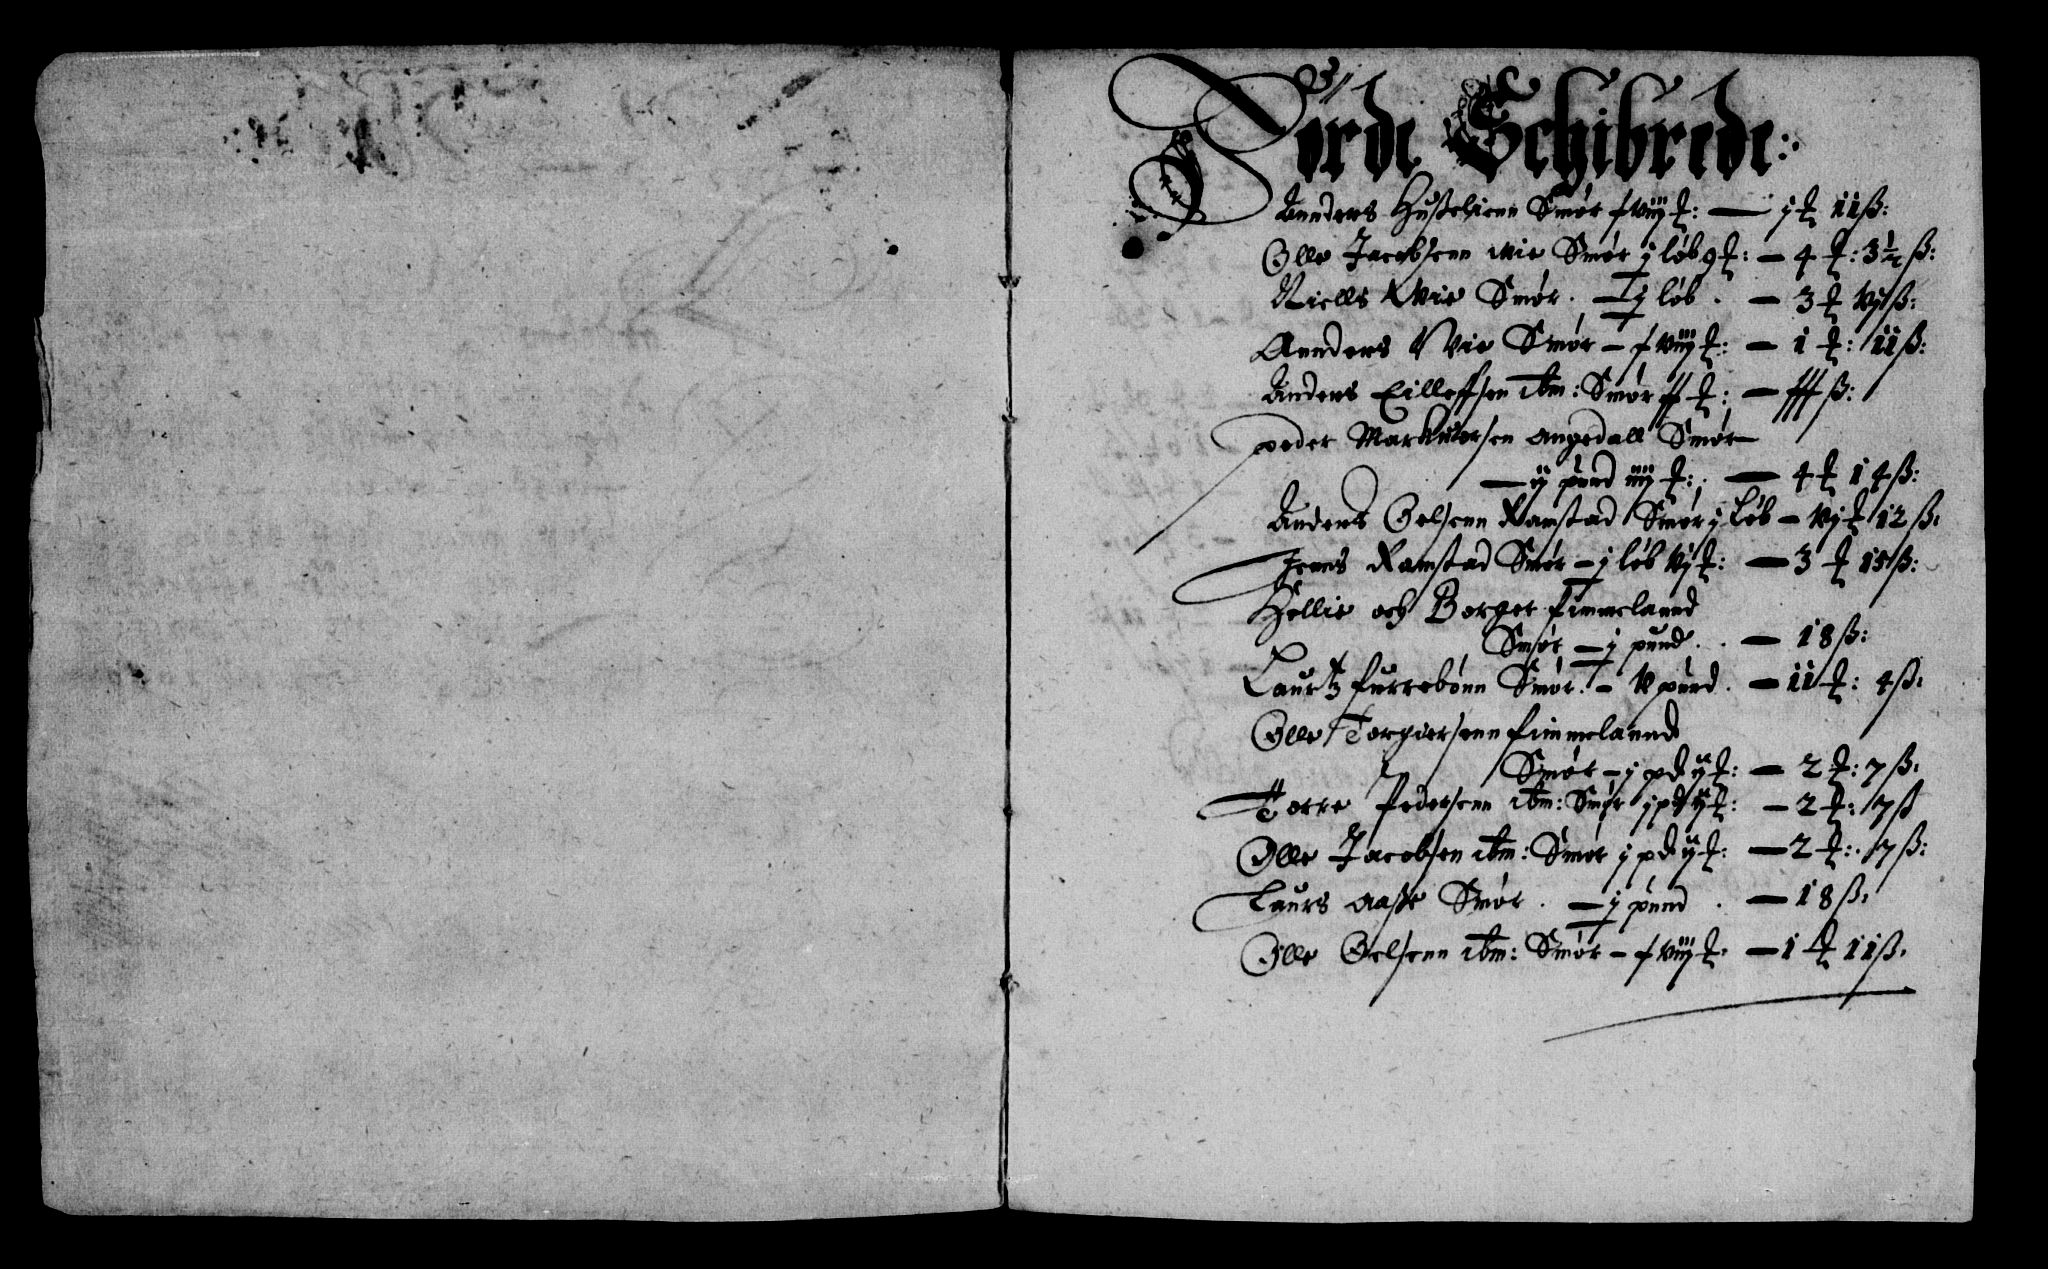 Førde Schibrede:
Anders Hustehienn Smør f viij ₰: — j ₰ ii ß:
Olle Jacobsenn Wie Smør j løb 9 ₰: — 4 ₰: 3½ ß:
Niells Wie Smør. — j løb. — 3 ₰ vj ß:
Annders Wie Smør — f viij ₰: — 1 ₰: ii ß:
Anders Eilleffsen ibm: Smør ff ₰: — fff ß:
peder angedall Smør
— ij pund iiij ₰: — 4 ₰ 14 ß:
Anders Oelsenn Ramstad Smør j Løb — vj ₰ 12 ß:
Jenns Ramstad Smør — j løb vj ₰: — 3 ₰ 15 ß:
Hellie och Borger fimmelannd
Smør — j pund. — 18 ß:
Laurtz furrebønn Smør. — v pund. — ii ₰: 4 ß:
Olle Torgiersenn fimmelannd
Smør — j pd ij ₰: — 2 ₰: 7 ß:
Torre Pedersenn ibm: Smør j pd ij ₰: — 2 ₰: 7 ß
Olle Jacobsen ibm: Smør j pd ij ₰: — 2 ₰: 7 ß:
Laurs Aasse Smør. — j pund. — 18 ß:
Olle Oelsenn ibm: Smør — f viij ₰: — 1 ₰ 11 ß: